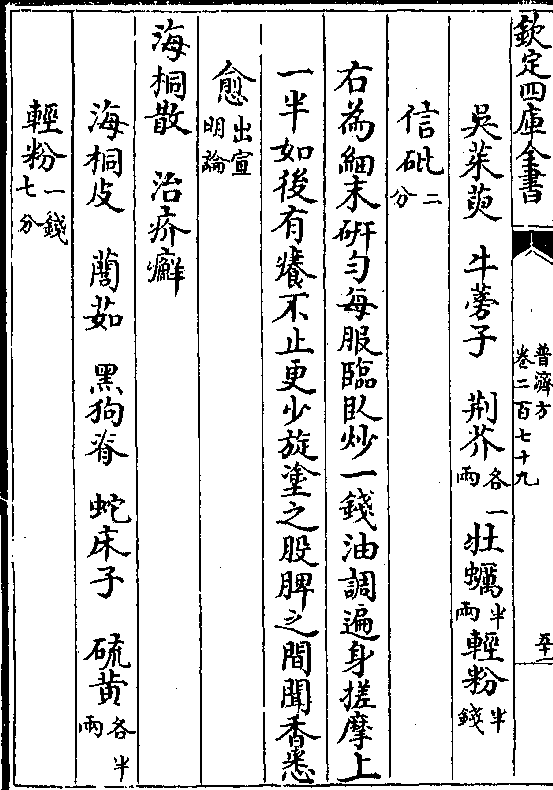 欽定四庫全書
普濟方
卷二百七十九
吳茱萸 牛蒡子 荆芥各一兩 牡蠣半兩 輕粉半錢
信砒二分
右為細末研勻每服臨臥炒一錢油調遍身搓摩上
一半如後有癢不止更少旋塗之股脾之間聞香悉
愈出宣明論
海桐散 治疥癬
海桐皮 䕡茹 黑狗脊 蛇床子 硫黄各半兩
輕粉一錢七分